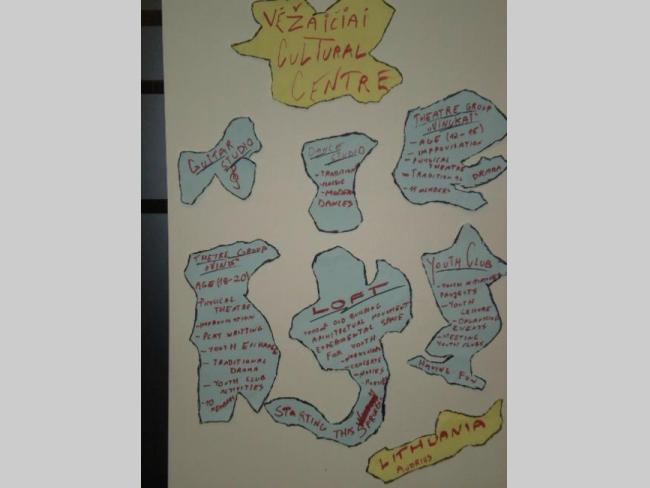 VĖŽAIČIAI
CULTURAL
CENTRE
GUITAR
STUDIO
DANCE
STUDIO
- TRADITION
- MODERN
DANCES
THEATRE GROUP
"VINUKAI"
- AGE (12-15)
- IMPROVISATION
- PHYSICAL
THEATRE
- TRADITIONAL DRAMA
MEMBERS
THETRE GROUP
AGE (18-20)
- PHYSICAL
THEATRE
- IMPROVISATION
- PLAY WRITTING
- YOUTH EXCHANGE
- TRADITIONAL
DRAMA
- YOUTH CLUB
ACTIVITIES
- 10
MEMBERS
LOFT
OLD BUILDING
MONUMENT
EXPERIMENTAL SPACE
FOR YOUTH
- WORKSHOPS
- CONCERTS
- MOVIES
STARTING THIS SPRING
YOUTH CLUB
- YOUTH INITIATIVES
PROJECTS
- YOUTH
LEISURE
- ORGANISING
EVENTS
- MEETING
YOUTH CLUBS
- HAVING FUN
LITHUANIA
AUDRIUS